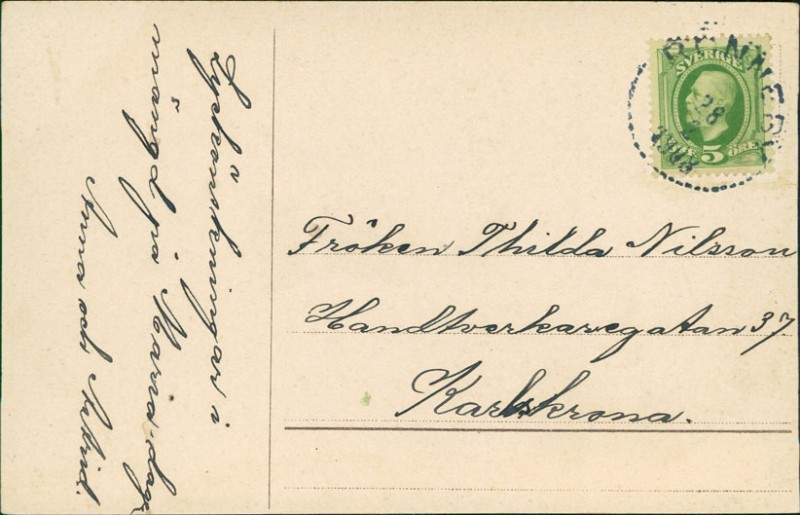 Lyckönskningar i
mängd på Maria-dag
Anna och Astrid.
RONNEBY
28
1908
SVERIGE
5 ÖRE
Fröken Thilda Nilsson
Handtverkaregatan 37
Karlskrona.